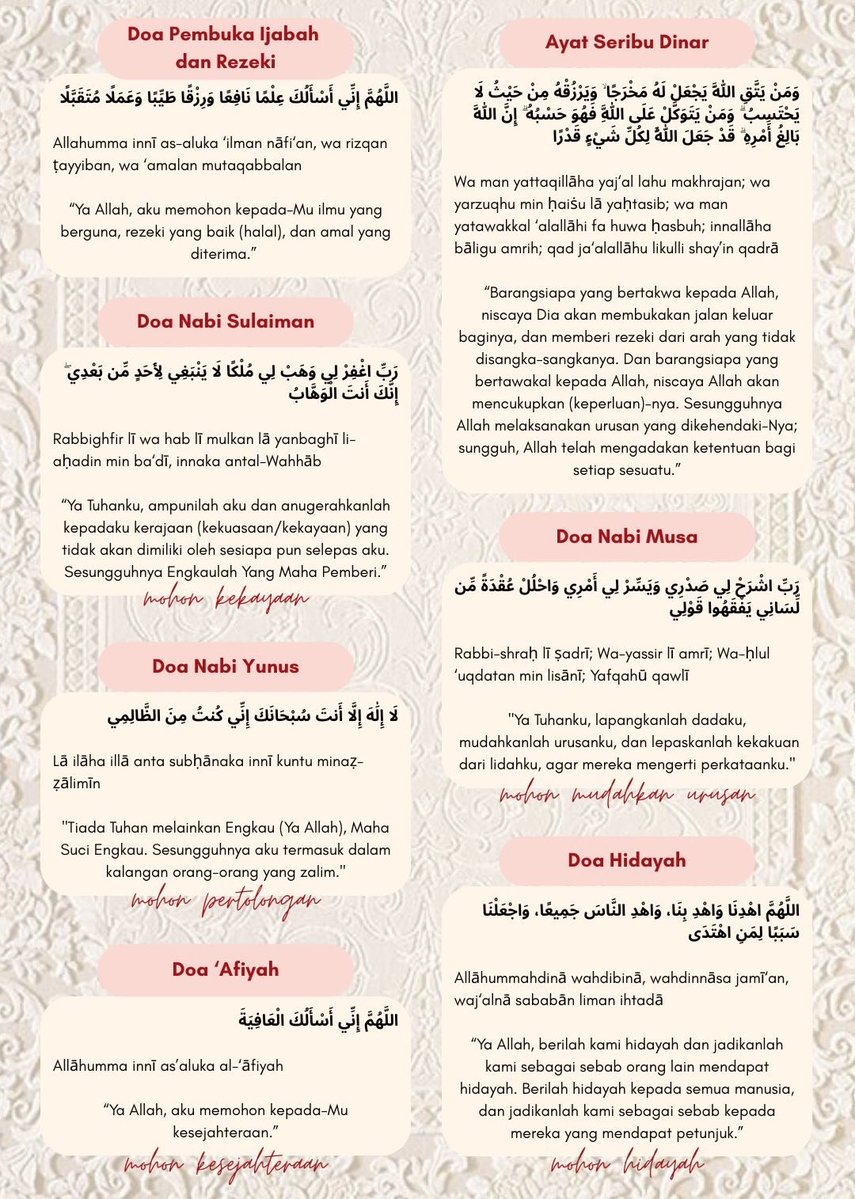 Doa Pembuka Ijabah
dan Rezeki
اللَّهُمَّ إِنِّي أَسْأَلُكَ عِلْمًا نَافِعًا وَرِزْقًا طَيِّبًا وَعَمَلًا مُتَقَبَّلًا
Allahumma innī as-aluka ‘ilman nāfi‘an, wa rizqan
ṭayyiban, wa ‘amalan mutaqabbalan
“Ya Allah, aku memohon kepada-Mu ilmu yang
berguna, rezeki yang baik (halal), dan amal yang
diterima.”
Doa Nabi Sulaiman
رَبِّ اغْفِرْ لِي وَهَبْ لِي مُلْكًا لَا يَنْبَغِي لِأَحَدٍ مِّن بَعْدِي ۖ
إِنَّكَ أَنتَ الْوَهَّابُ
Rabbighfir lī wa hab lī mulkan lā yanbaghī li-
aḥadin min ba‘dī, innaka antal-Wahhāb
“Ya Tuhanku, ampunilah aku dan anugerahkanlah
kepadaku kerajaan (kekuasaan/kekayaan) yang
tidak akan dimiliki oleh sesiapa pun selepas aku.
Sesungguhnya Engkaulah Yang Maha Pemberi.”
mohon kekayaan
Doa Nabi Yunus
لَا إِلَٰهَ إِلَّا أَنتَ سُبْحَانَكَ إِنِّي كُنتُ مِنَ الظَّالِمِي
Lā ilāha illā anta subḥānaka innī kuntu minaẓ-
ẓālimīn
"Tiada Tuhan melainkan Engkau (Ya Allah), Maha
Suci Engkau. Sesungguhnya aku termasuk dalam
kalangan orang-orang yang zalim."
mohon pertolongan
Doa ‘Afiyah
اللَّهُمَّ إِنِّي أَسْأَلُكَ الْعَافِيَةَ
Allāhumma innī as’aluka al-‘āfiyah
“Ya Allah, aku memohon kepada-Mu
kesejahteraan.”
mohon kesejahteraan
Ayat Seribu Dinar
وَمَنْ يَتَّقِ اللَّهَ يَجْعَلْ لَهُ مَخْرَجًا ۙ وَيَرْزُقْهُ مِنْ حَيْثُ لَا
يَحْتَسِبُ ۗ وَمَنْ يَتَوَكَّلْ عَلَى اللَّهِ فَهُوَ حَسْبُهُ ۗ إِنَّ اللَّهَ
بَالِغُ أَمْرِهِ ۗ قَدْ جَعَلَ اللَّهُ لِكُلِّ شَيْءٍ قَدْرًا
Wa man yattaqillāha yaj‘al lahu makhrajan; wa
yarzuqhu min ḥaiṡu lā yaḥtasib; wa man
yatawakkal ‘alallāhi fa huwa ḥasbuh; innallāha
bāligu amrih; qad ja‘alallāhu likulli shay’in qadrā
“Barangsiapa yang bertakwa kepada Allah,
niscaya Dia akan membukakan jalan keluar
baginya, dan memberi rezeki dari arah yang tidak
disangka-sangkanya. Dan barangsiapa yang
bertawakal kepada Allah, niscaya Allah akan
mencukupkan (keperluan)-nya. Sesungguhnya
Allah melaksanakan urusan yang dikehendaki-Nya;
sungguh, Allah telah mengadakan ketentuan bagi
setiap sesuatu.”
Doa Nabi Musa
رَبِّ اشْرَحْ لِي صَدْرِي وَيَسِّرْ لِي أَمْرِي وَاحْلُلْ عُقْدَةً مِّن
لِّسَانِي يَفْقَهُوا قَوْلِي
Rabbi-shraḥ lī ṣadrī; Wa-yassir lī amrī; Wa-ḥlul
‘uqdatan min lisānī; Yafqahū qawlī
"Ya Tuhanku, lapangkanlah dadaku,
mudahkanlah urusanku, dan lepaskanlah kekakuan
dari lidahku, agar mereka mengerti perkataanku."
mohon mudahkan urusan
Doa Hidayah
اللَّهُمَّ اهْدِنَا وَاهْدِ بِنَا، وَاهْدِ النَّاسَ جَمِيعًا، وَاجْعَلْنَا
سَبَبًا لِمَنِ اهْتَدَى
Allāhummahdinā wahdibinā, wahdinnāsa jamī‘an,
waj‘alnā sababān liman ihtadā
“Ya Allah, berilah kami hidayah dan jadikanlah
kami sebagai sebab orang lain mendapat
hidayah. Berilah hidayah kepada semua manusia,
dan jadikanlah kami sebagai sebab kepada
mereka yang mendapat petunjuk.”
mohon hidayah